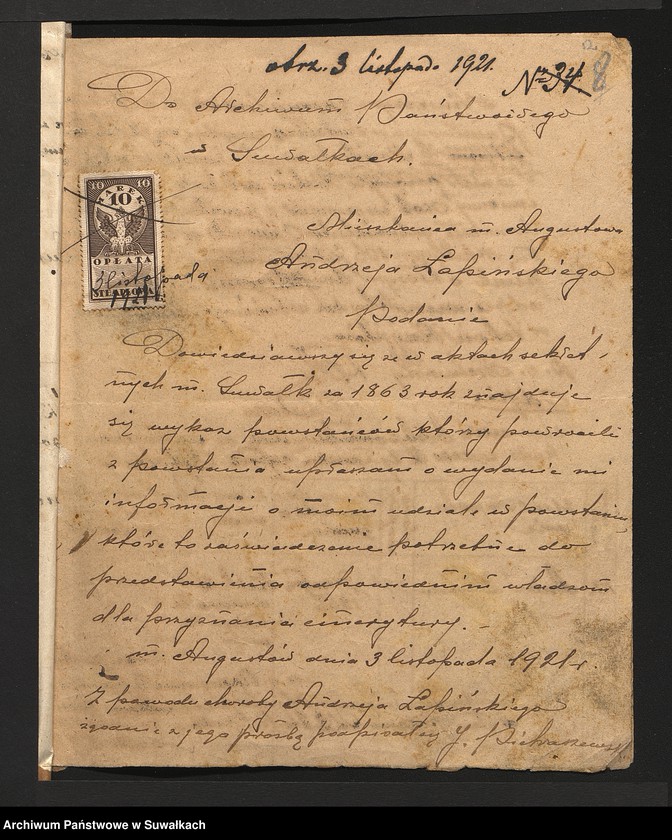 otrz. 3 listopada 1921.
No 34.
8
Do Archiwum Państwowego
w Suwałkach.
10 10
MAREK
10
OPŁATA
STEMPLOWA
3 listopada
1921
Mieszkańca m. Augustowa
Andrzeja Łapińskiego
Podanie
Dowiedziawszy się że w aktach sekret-
nych m. Suwałk za 1863 rok znajduje
się wykaz powstańców którzy powrócili
z powstania upraszam o wydanie mi
informacji o moim udziale w powstaniu,
które to zaświadczenie potrzebne do
przedstawienia odpowiednim władzom
dla przyznania emerytury. -
m. Augustów dnia 3 listopada 1921 r.
Z powodu choroby Andrzeja Łapińskiego
zgodnie z jego prośbą podpisał J.
Archiwum Państwowe w Suwałkach